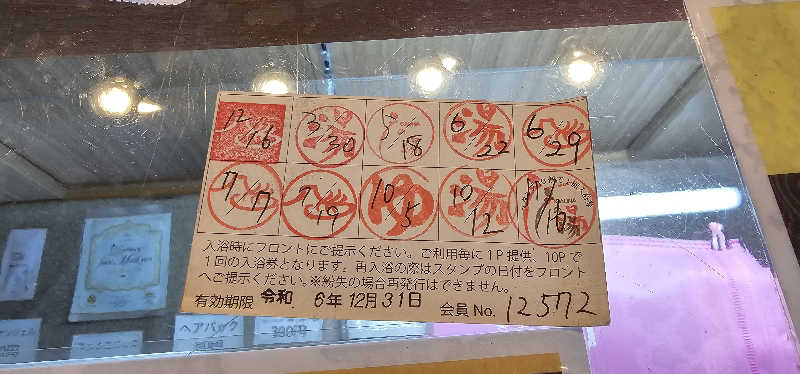 12/16 3/30 湯 5/18 6/22 湯 6/29
7/7 7/19 10/5 ゆ 10/12 湯
入浴時にフロントにご提示ください。ご利用毎に1P提供、10Pで
1回の入浴券となります。再入浴の際はスタンプの日付をフロント
へご提示ください。※紛失の場合再発行はできません。
有効期限 令和 6年12月31日 会員No. 12572
ヘアパック